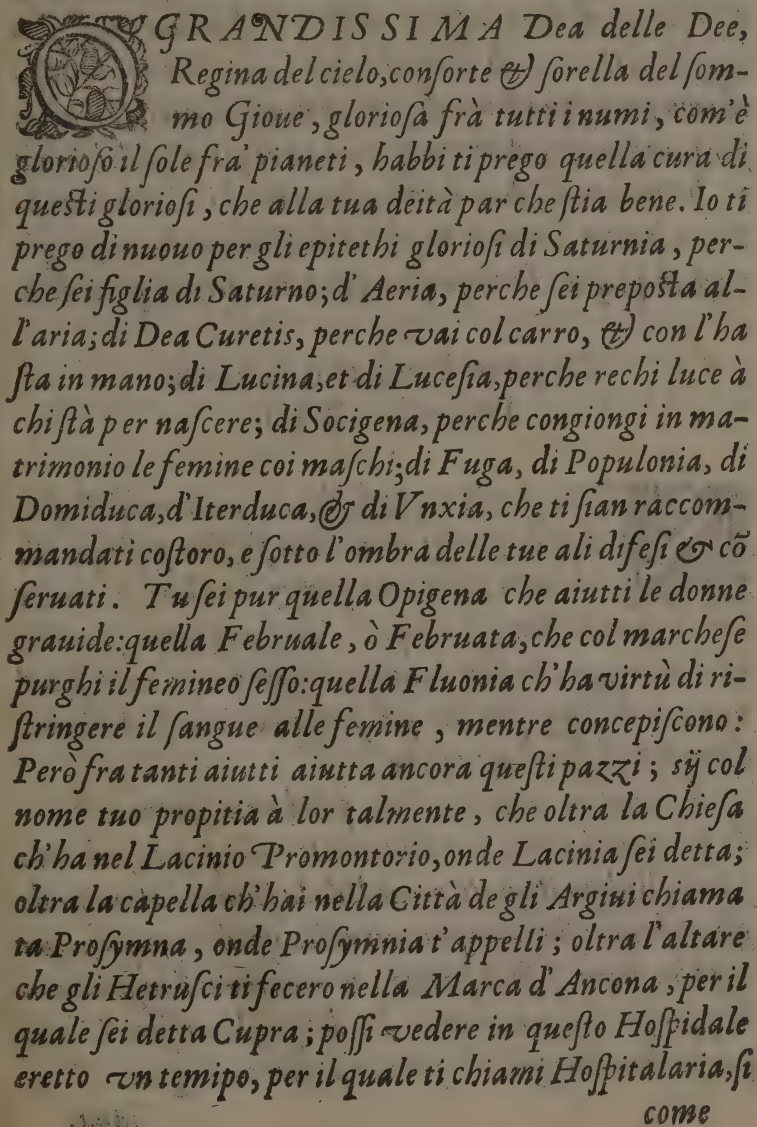 O GRANDISSIMA Dea delle Dee,
Regina del cielo,conſorte & ſorella del ſom-
mo Gioue, glorioſa frà tutti i numi, com'è
glorioſo il ſole fra' pianeti, habbi ti prego quella cura di
queſti glorioſi, che alla tua deità par che ſtia bene. Io ti
prego di nuouo per gli epitethi glorioſi di Saturnia, per-
che ſei figlia di Saturno; d' Aeria, perche ſei prepoſta al-
l'aria; di Dea Curetis, perche vai col carro, & con l'ha
ſta in mano; di Lucina,et di Luceſia,perche rechi luce à
chi ſtà per naſcere; di Socigena, perche congiongi in ma-
trimonio le femine coi maſchi;di Fuga, di Populonia, di
Domiduca,d'Iterduca,& di Vnxia, che ti ſian raccom-
mandati coſtoro, e ſotto l'ombra delle tue ali difeſi & cõ
ſeruati. Tu ſei pur quella Opigena che aiutti le donne
grauide:quella Februale, ò Februata,che col marcheſe
purghi il femineo ſeſſo:quella Fluonia ch'ha virtù di ri-
ſtringere il ſangue alle femine, mentre concepiſcono:
Però fra tanti aiutti aiutta ancora queſti pazzi; ſij col
nome tuo propitia à lor talmente, che oltra la Chieſa
ch'ha nel Lacinio Promontorio,onde Lacinia ſei detta;
oltra la capella ch'hai nella Città de gli Argiui chiama
ta Proſymna, onde Proſymnia t'appelli; oltra l'altare
che gli Hetruſci ti fecero nella Marca d' Ancona, per il
quale ſei detta Cupra; poſſi vedere in queſto Hoſpidale
eretto vn temipo, per il quale ti chiami Hoſpitalaria,ſi
come